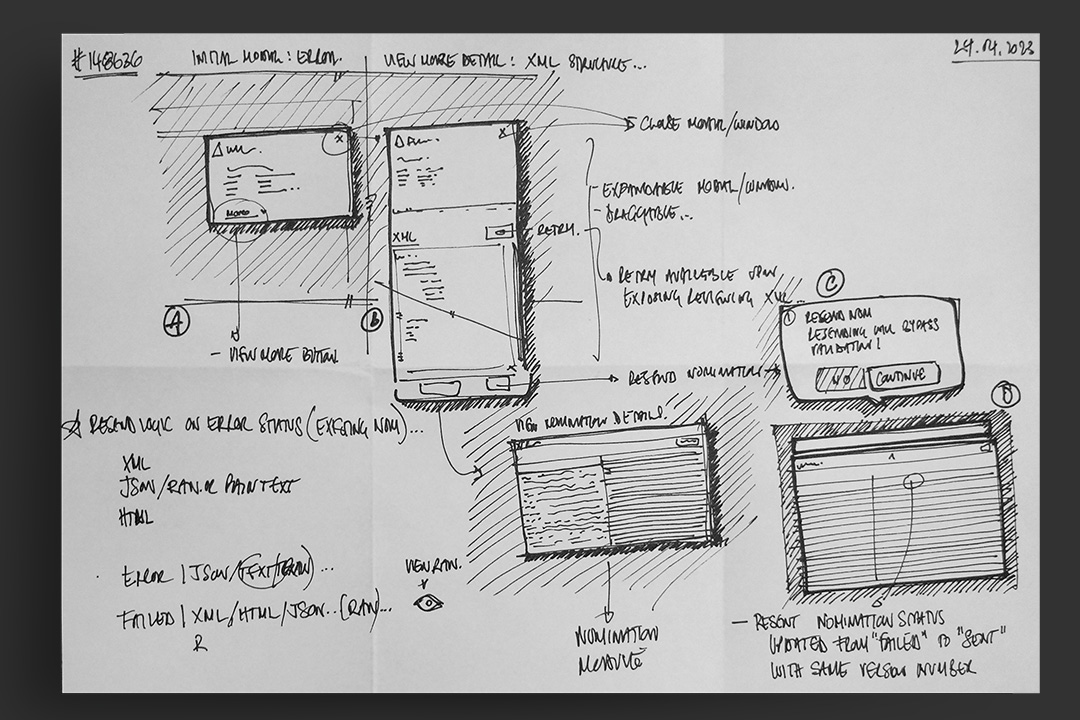 #148636
INITIAL MODAL: ERROR.
VIEW MORE DETAIL: XML STRUCTURE...
24.04.2023
X
X
CLOSE MODAL/WINDOW
EXPANDABLE MODAL/WINDOW.
- DRAGGABLE...
MORE
XML
RETRY.
RETRY AVAILABLE UPON
EXPOSING/REVIEWING XML...
A
B
C
- VIEW MORE BUTTON
RESEND NOMINATION
RESEND NOM
RESENDING WILL BYPASS
VALIDATION!
NO
CONTINUE
D
RESEND LOGIC ON ERROR STATUS (EXISTING NOM)...
XML
JSON/RAW OR PLAIN TEXT
HTML
ERROR | JSON/(TEXT/RAW)...
FAILED | XML/HTML/JSON..(RAW)...
R
VIEW NOMINATION DETAILS.
VIEW RAW.
NOMINATION
MODULE
- RESENT NOMINATION STATUS
UPDATED FROM "FAILED" TO "SENT"
WITH SAME VERSION NUMBER